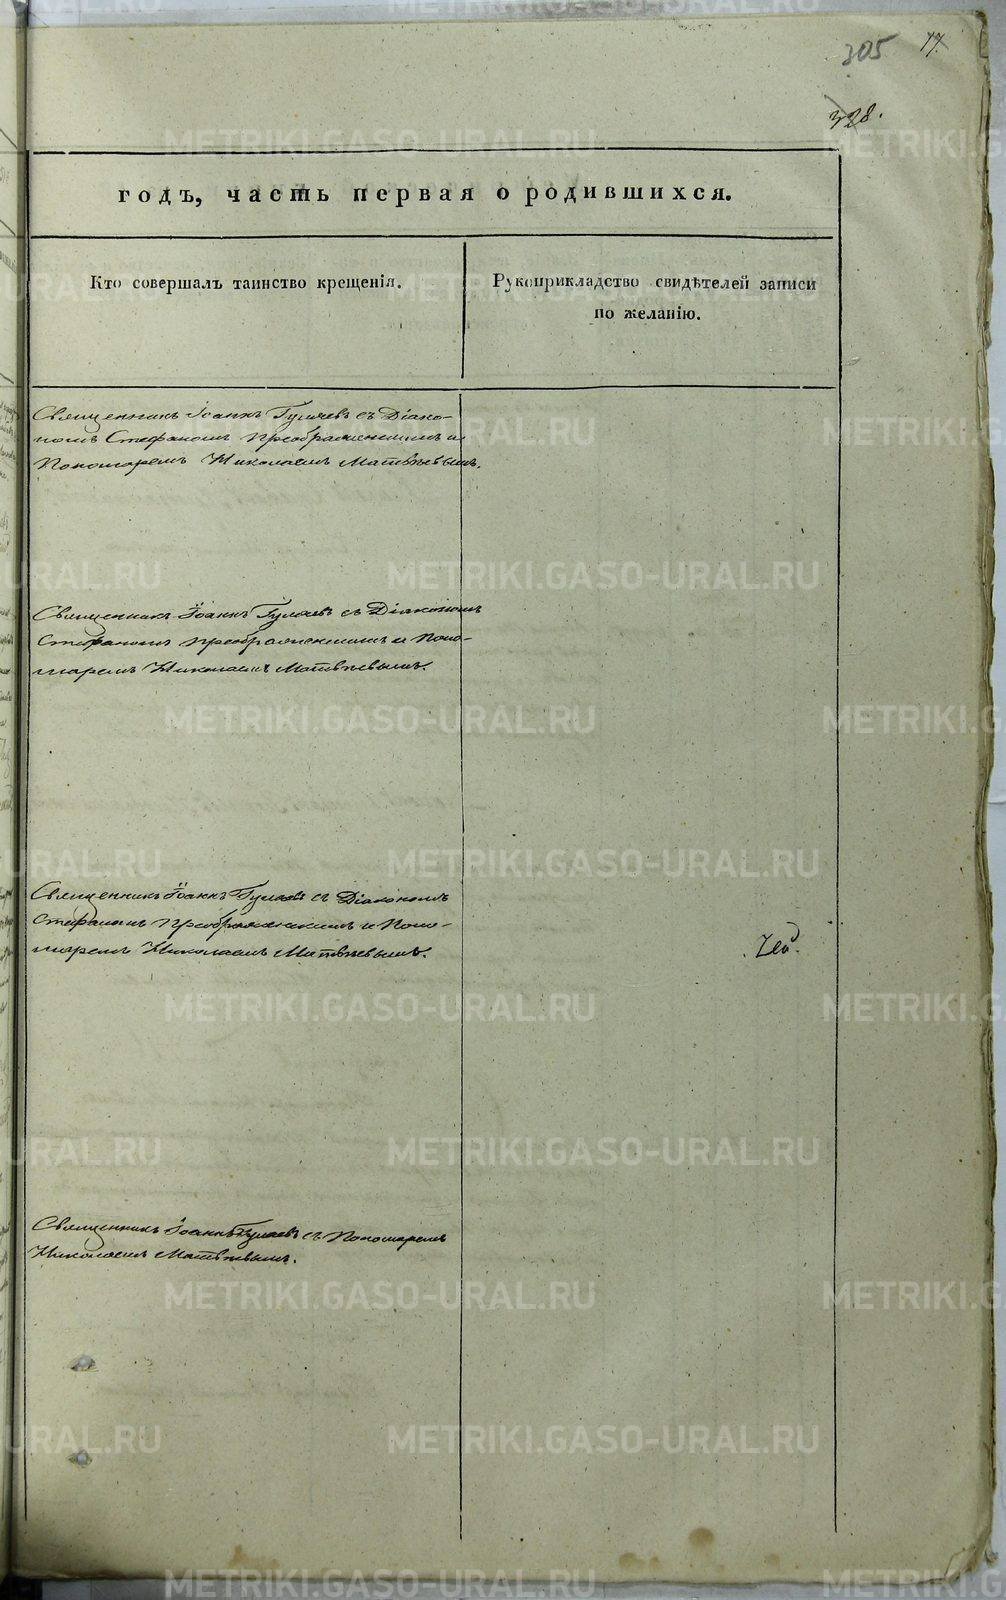 305 77
328.
годъ, часть первая о родившихся.
Кто совершалъ таинство крещенія.
Рукоприкладство свидѣтелей записи
по желанію.
Священникъ Іоаннъ Гуляевъ съ Діако-
номъ Стефаномъ Преображенскимъ и
Пономаремъ Николаемъ Матвѣевымъ.
Священникъ Іоаннъ Гуляевъ съ Діакономъ
Стефаномъ Преображенскимъ и Поно-
маремъ Николаемъ Матвѣевымъ.
Священникъ Іоаннъ Гуляевъ съ Діакономъ
Стефаномъ Преображенскимъ и Поно-
маремъ Николаемъ Матвѣевымъ.
Священникъ Іоаннъ Гуляевъ съ Пономаремъ
Николаемъ Матвѣевымъ.
METRIKI.GASO-URAL.RU